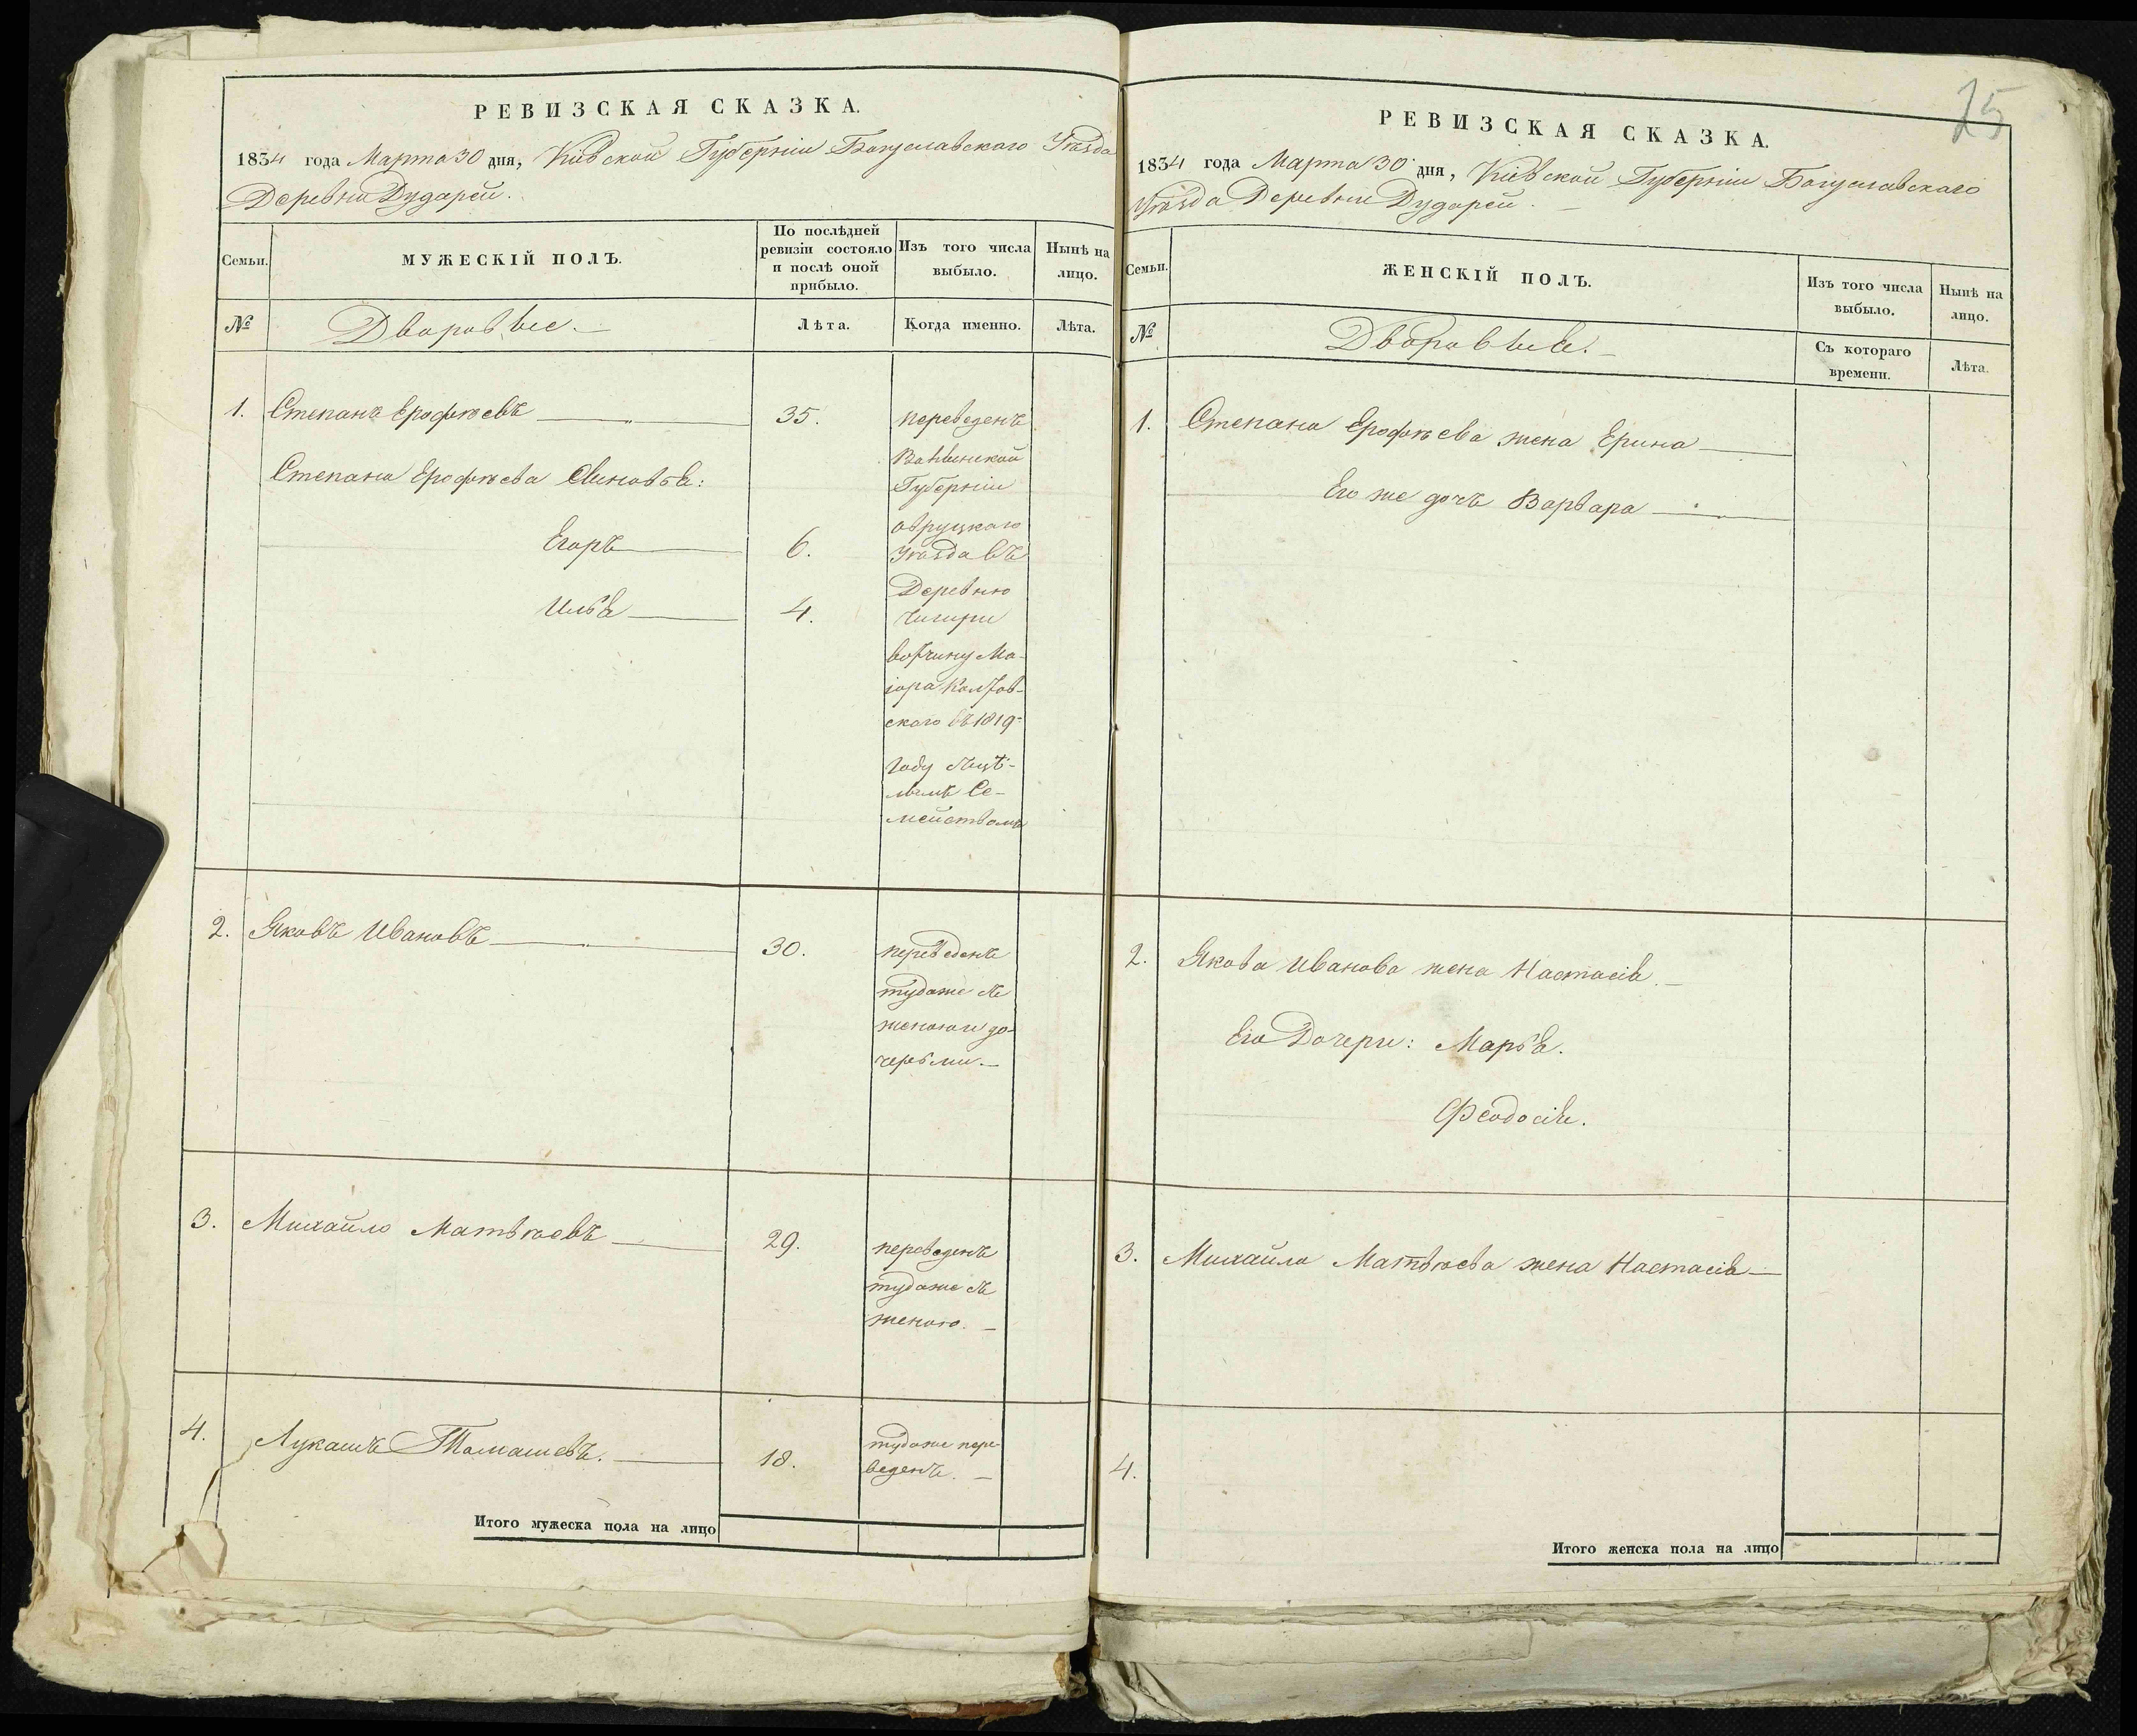 РЕВИЗСКАЯ СКАЗКА.
1834 года Марта 30 дня, Кіевской Губерніи Богуславскаго Уѣзда
Деревни Дударей.
Семьи.
МУЖЕСКІЙ ПОЛЪ.
По послѣдней
ревизіи состояло
и послѣ оной
прибыло.
Изъ того числа
выбыло.
Нынѣ на
лицо.
№
Дворовые.
Лѣта.
Когда именно.
Лѣта.
1. Степанъ Ерофѣевъ 35.
Степана Ерофѣева Сыновья:
Егоръ 6.
Илья 4.
переведенъ
Волынской
Губерніи
овруцкаго
Уѣзда въ
Деревню
Чигири
вотчину Ма-
іора Колтов-
скаго въ 1819-
году съ цѣ-
лымъ Се-
мействомъ
2. Яковъ Ивановъ 30.
переведенъ
тудаже съ
женою и до-
черьми.
3. Михайло Матвѣевъ 29.
переведенъ
тудаже съ
женою.
4. Лукашъ Томашевъ. 18.
тудаже пере-
веденъ.
Итого мужеска пола на лицо
25
РЕВИЗСКАЯ СКАЗКА.
1834 года Марта 30 дня, Кіевской Губерніи Богуславскаго
Уѣзда Деревни Дударей.
Семьи.
ЖЕНСКІЙ ПОЛЪ.
Изъ того числа
выбыло.
Нынѣ на
лицо.
№
Дворовые.
Съ котораго
времени.
Лѣта.
1. Степана Ерофѣева жена Ерина
Его же дочь Варвара
2. Якова Иванова жена Настасія.
Его Дочери: Марья.
Феодосія.
3. Михайла Матвѣева жена Настасія
4.
Итого женска пола на лицо